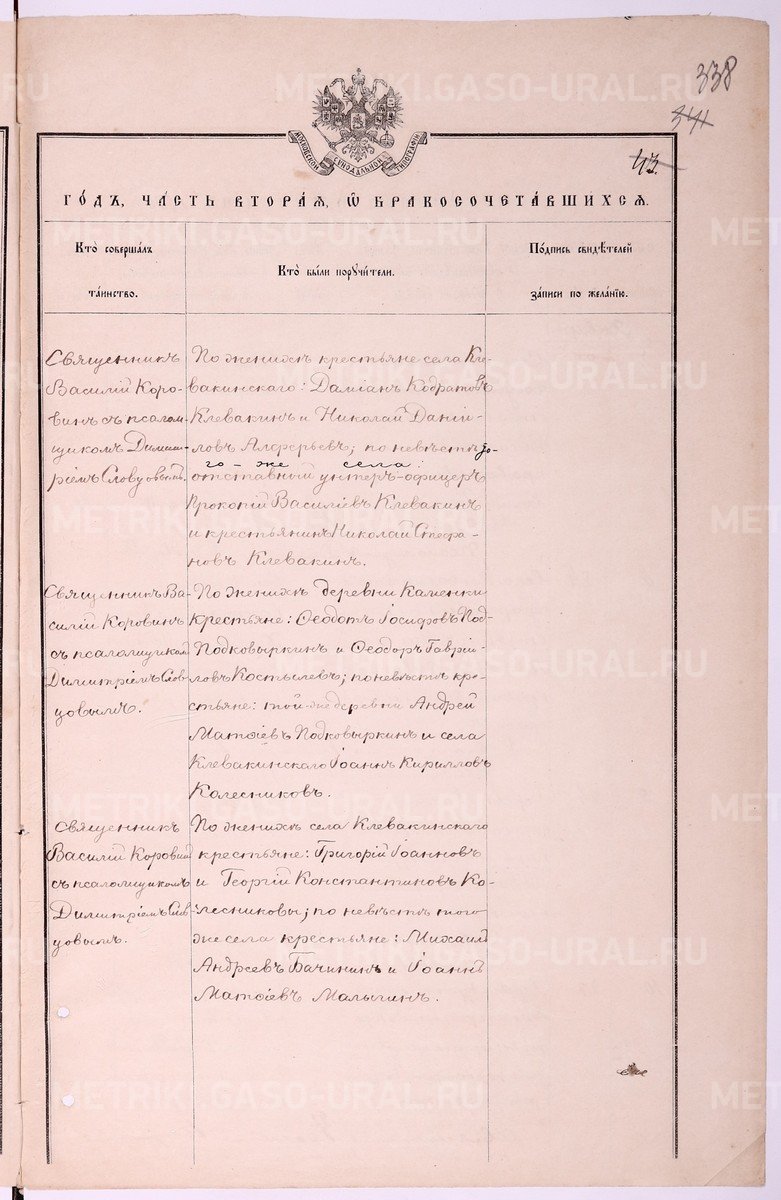 338
341
43.
МОСКОВСКОЙ СѴНОДАЛЬНОЙ ТИПОГРАФІИ
ГО́ДЪ, ЧА́СТЬ ВТОРА́Я, Ѡ БРАКОСОЧЕТА́ВШИХСЯ.
Кто̀ соверша́лъ
та́инство.
Кто̀ бы́ли порꙋчи́тели.
По́дпись свидѣ́телей
за́писи по жела́нїю.
Священникъ
Василій Коро-
винъ съ псалом-
щикомъ Дими-
ріемъ Словцовымъ.
По женихѣ крестьяне села Кле-
вакинскаго: Даміанъ Кодратовъ
Клевакинъ и Николай Даніи-
ловъ Алферьевъ; по невѣстѣ то-
го-же села:
отставный унтеръ-офицеръ
Прокопій Василіевъ Клевакинъ
и крестьянинъ Николай Стефа-
новъ Клевакинъ.
Священникъ Ва-
силій Коровинъ
съ псаломщикомъ
Димитріемъ Слов-
цовымъ.
По женихѣ деревни Каменки
крестьяне: Ѳеодотъ Іосифовъ Под-
Подковыркинъ и Ѳеодоръ Гаврїи-
ловъ Костылевъ; по невѣстѣ кре-
стьяне: той-же деревни Андрей
Матѳіевъ Подковыркинъ и села
Клевакинскаго Іоаннъ Кирилловъ
Колесниковъ.
Священникъ
Василій Коровинъ
съ псаломщикомъ
Димитріемъ Слов-
цовымъ.
По женихѣ села Клевакинскаго
крестьяне: Григорій Іоанновъ
и Георгій Константиновъ Ко-
лесниковы; по невѣстѣ того
же села крестьяне: Михаилъ
Андреевъ Бачининъ и Іоаннъ
Матѳіевъ Малыгинъ.
METRIKI.GASO-URAL.RU